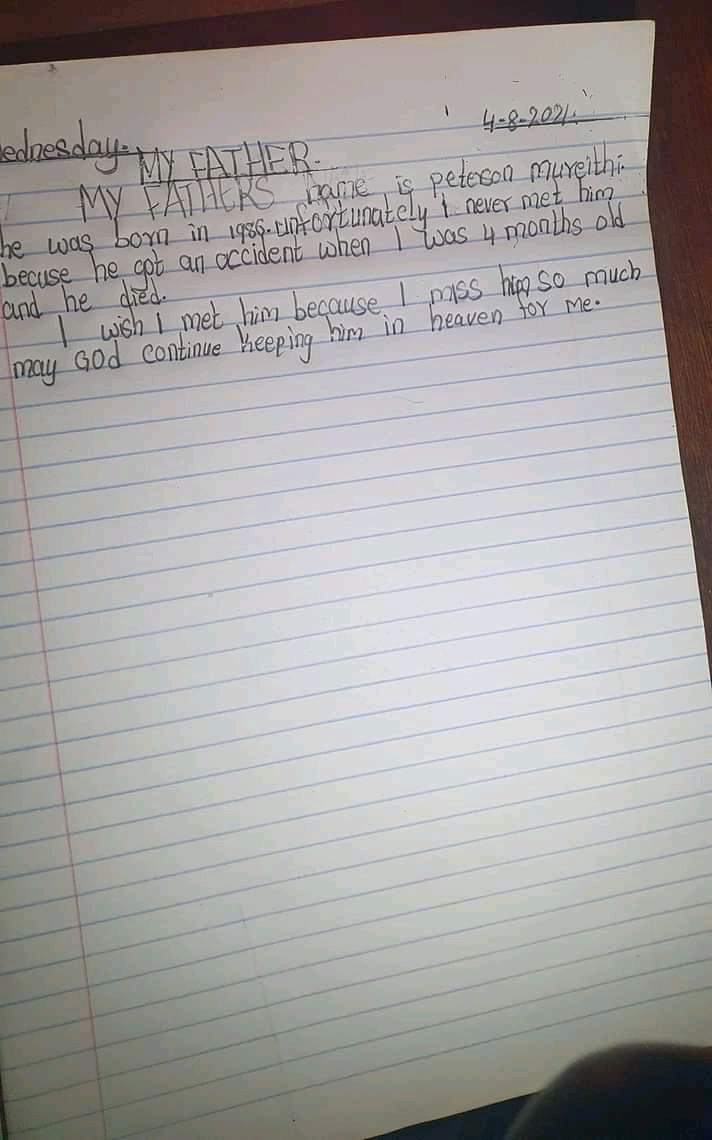 ednesday. 4-8-2021.
MY FATHER.
MY FATHERS name is peterson mureithi.
he was born in 1986. unfortunately I never met him
becuse he got an accident when I was 4 months old
and he died.
I wish I met him because I miss him so much
may GOD continue keeping him in heaven for me.